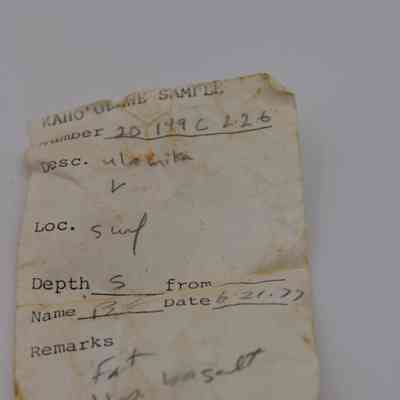 KAHO'OLAWE SAMPLE
Number 20 199 C 226
Desc. ulamika
Loc. surf
Depth S from
Name Date 6-21-77
Remarks
Fat
basalt